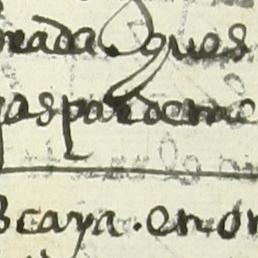 rada. ques
gaspar deme
Bcaya. en on